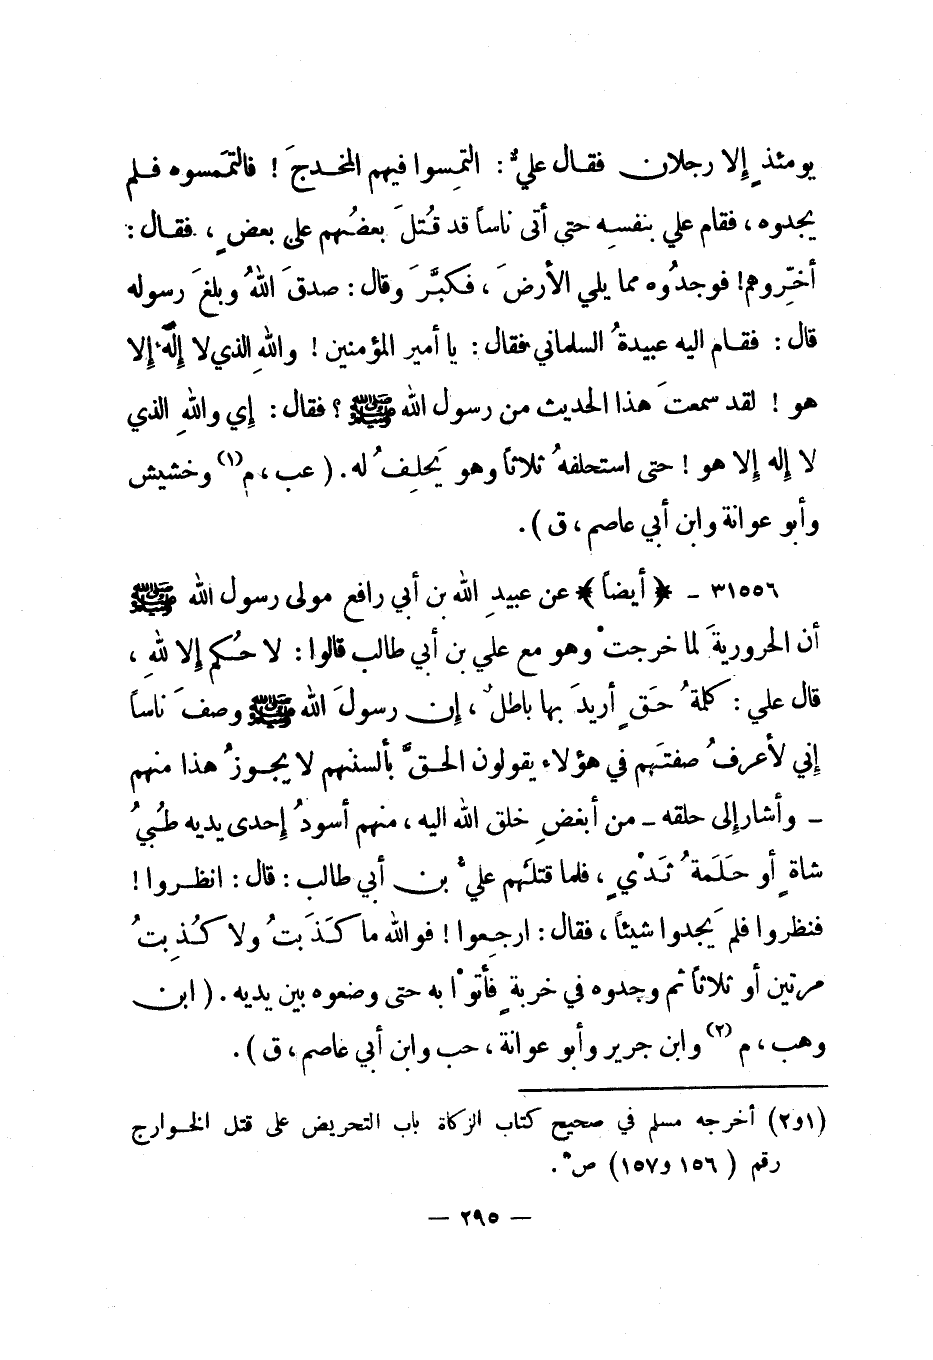 يومئذٍ إلا رجلان فقال عليٌّ : التمِسوا فيهم المخدجَ ! فالتمَسوه فلم
يجدوه ، فقام علي بنفسِه حتى أتى ناساً قد قُتلَ بعضُهم على بعضٍ ، فقال :
أخّروهم! فوجدُوه مما يلي الأرضَ ، فكبَّرَ وقال : صدقَ اللهُ وبلغَ رسوله
قال : فقام اليه عبيدةُ السلماني فقال : يا أمير المؤمنين ! واللهِ الذي لا إلٓه إلا
هو ! لقد سمعتَ هذا الحديث من رسول الله ﷺ ؟ فقال : إي واللهِ الذي
لا إله إلا هو ! حتى استحلفهُ ثلاثاً وهو يَحلِفُ له . ( عب ، م(١) وخشيش
وأبو عوانة وابن أبي عاصم ، ق ) .
٣١٥٥٦ ـ ﴿ أيضاً ﴾ عن عبيدِ الله بن أبي رافع مولى رسول الله ﷺ
أن الحروريةَ لما خرجتْ وهو مع علي بن أبي طالب قالوا : لا حُكم إلا للهِ ،
قال علي : كلمةُ حَقٍ أريدَ بها باطلٌ ، إن رسولَ الله ﷺ وصفَ ناساً
إني لأعرفُ صفتَهم في هؤلاء يقولون الحقَّ بألسنهم لا يجوزُ هذا منهم
ـ وأشار إلى حلقه ـ من أبغضِ خلق الله اليه ، منهم أسودُ إحدى يديه طُبيُ
شاةٍ أو حَلَمةُ ثَدْيٍ ، فلما قتلَهم عليُّ بن أبي طالب : قال : انظروا !
فنظروا فلم يَجدوا شيئاً ، فقال : ارجِعوا ! فوالله ما كَذَبتُ ولا كُذِبتُ
مرتين أو ثلاثاً ثم وجدوه في خربةٍ فأتوْا به حتى وضعوه بين يديه . ( ابن
وهب ، م (٢) وابن جرير وأبو عوانة ، حب وابن أبي عاصم ، ق ) .
(١و٢) أخرجه مسلم في صحيح كتاب الزكاة باب التحريض على قتل الخوارج
رقم ( ١٥٦ و١٥٧ ) ص .
— ٢٩٥ —